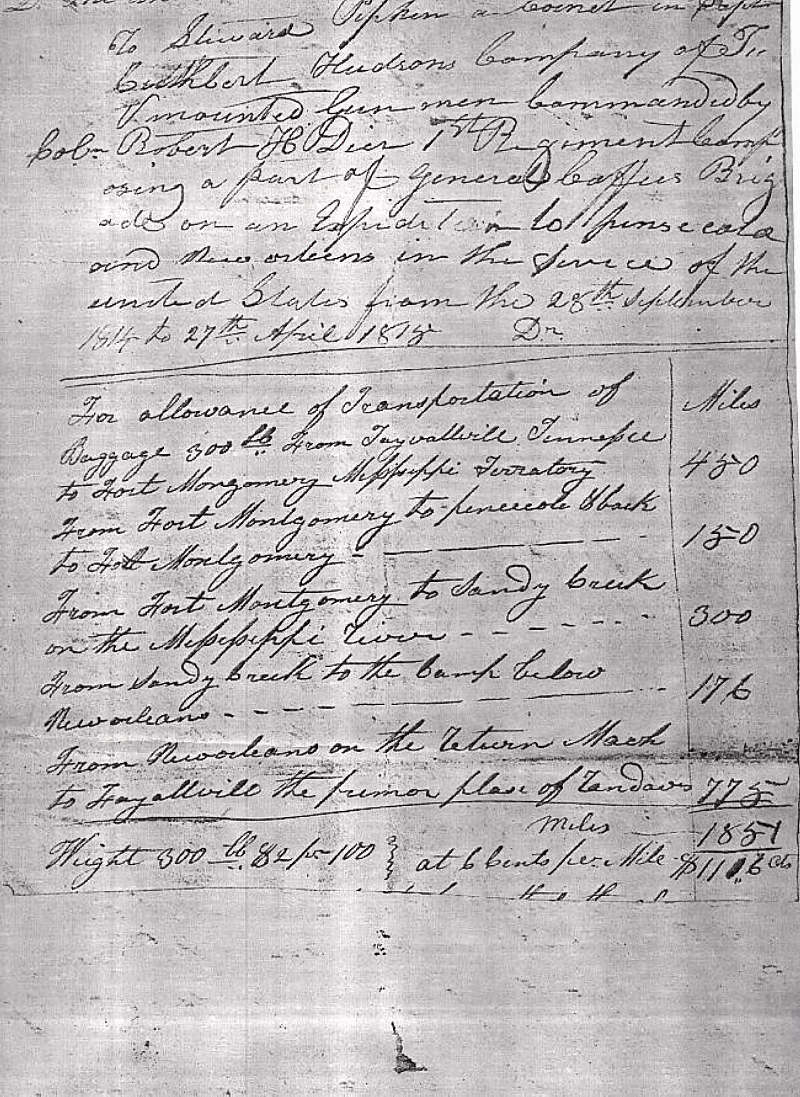 To Steward Pipkin a Cornet in Capt
Cuthbert Hudsons Company of Te
V mounted Gun men Commanded by
Colo Robert H Dier 1st Regiment Comp
osing a part of General Coffees Brig
ade on an Expidition to pensecola
and New orleens in the Service of the
united States from the 28th September
1814 to 27th April 1815 Dr
For allowance of Transportation of Miles
Baggage 300 lb From Fayvallvill Tennessee
to Fort Mongomery Mississippi Terratory 450
From Fort Montgomery to penecole & back
to Fort Montgomery - 150
From Fort Montgomery to Sandy Creek
on the Mississippi River - - - - - - 300
From Sandy Creek to the Camp below
New orleans - - - - - 176
From New orleans on the return Mach
to Fayallvill the primor place of Randavos 775
Miles 1851
Wight 300 lb $2 pr 100 at 6 Cents per Mile $11.6 cts